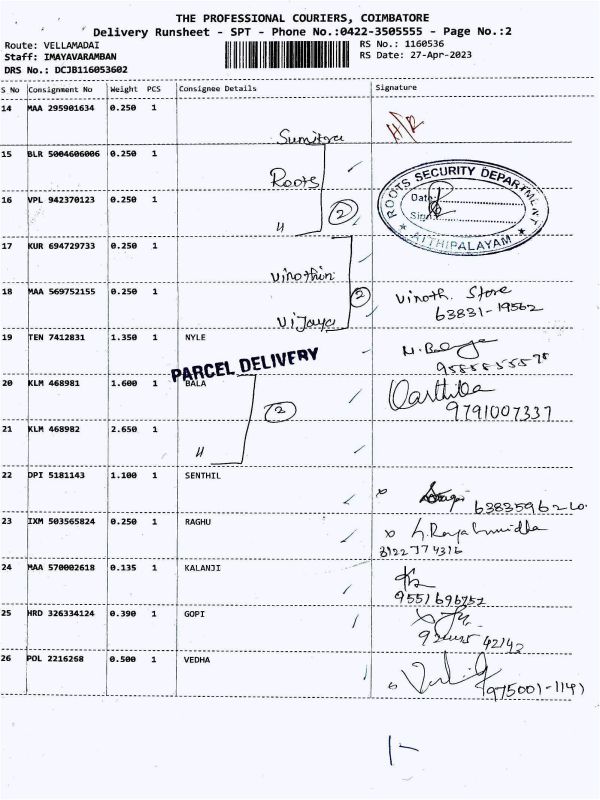 THE PROFESSIONAL COURIERS, COIMBATORE
Delivery Runsheet - SPT - Phone No.:0422-3505555 - Page No.:2
Route: VELLAMADAI
RS No.: 1160536
Staff: IMAYAVARAMBAN
RS Date: 27-Apr-2023
DRS No.: DCJB116053602
S No Consignment No Weight PCS Consignee Details Signature
14 MAA 295901634 0.250 1
Sumitra H/R
15 BLR 5004606006 0.250 1
Roots
ROOTS SECURITY DEPARTMENT
Date:
Sign:
ATTHIPALAYAM
16 VPL 942370123 0.250 1
" 2
17 KUR 694729733 0.250 1
Vinothini
18 MAA 569752155 0.250 1
2 Vinoth. Store
Vijaya 63831-19562
19 TEN 7412831 1.350 1 NYLE
PARCEL DELIVERY
20 KLM 468981 1.600 1 BALA
2 9791007337
21 KLM 468982 2.650 1
"
22 DPI 5181143 1.100 1 SENTHIL
23 IXM 503565824 0.250 1 RAGHU
8122774316
24 MAA 570002618 0.135 1 KALANJI
9551696757
25 HRD 326334124 0.390 1 GOPI
26 POL 2216268 0.500 1 VEDHA